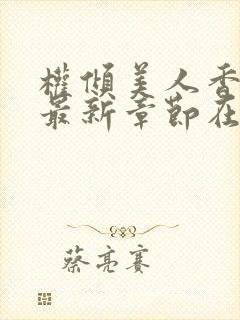 權傾美人香
最新章節在
蔡亮賽